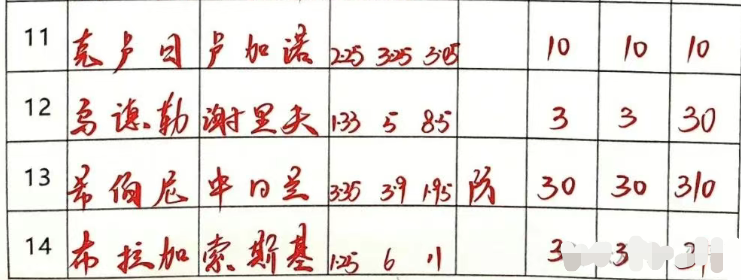 11 克卢日 卢加诺 2.25 3.25 3.05 10 10 10
12 乌德勒 谢里夫 1.33 5 8.5 3 3 30
13 希伯尼 中日兰 3.35 3.9 1.95 防 30 30 310
14 布拉加 索斯基 1.25 6 11 3 3